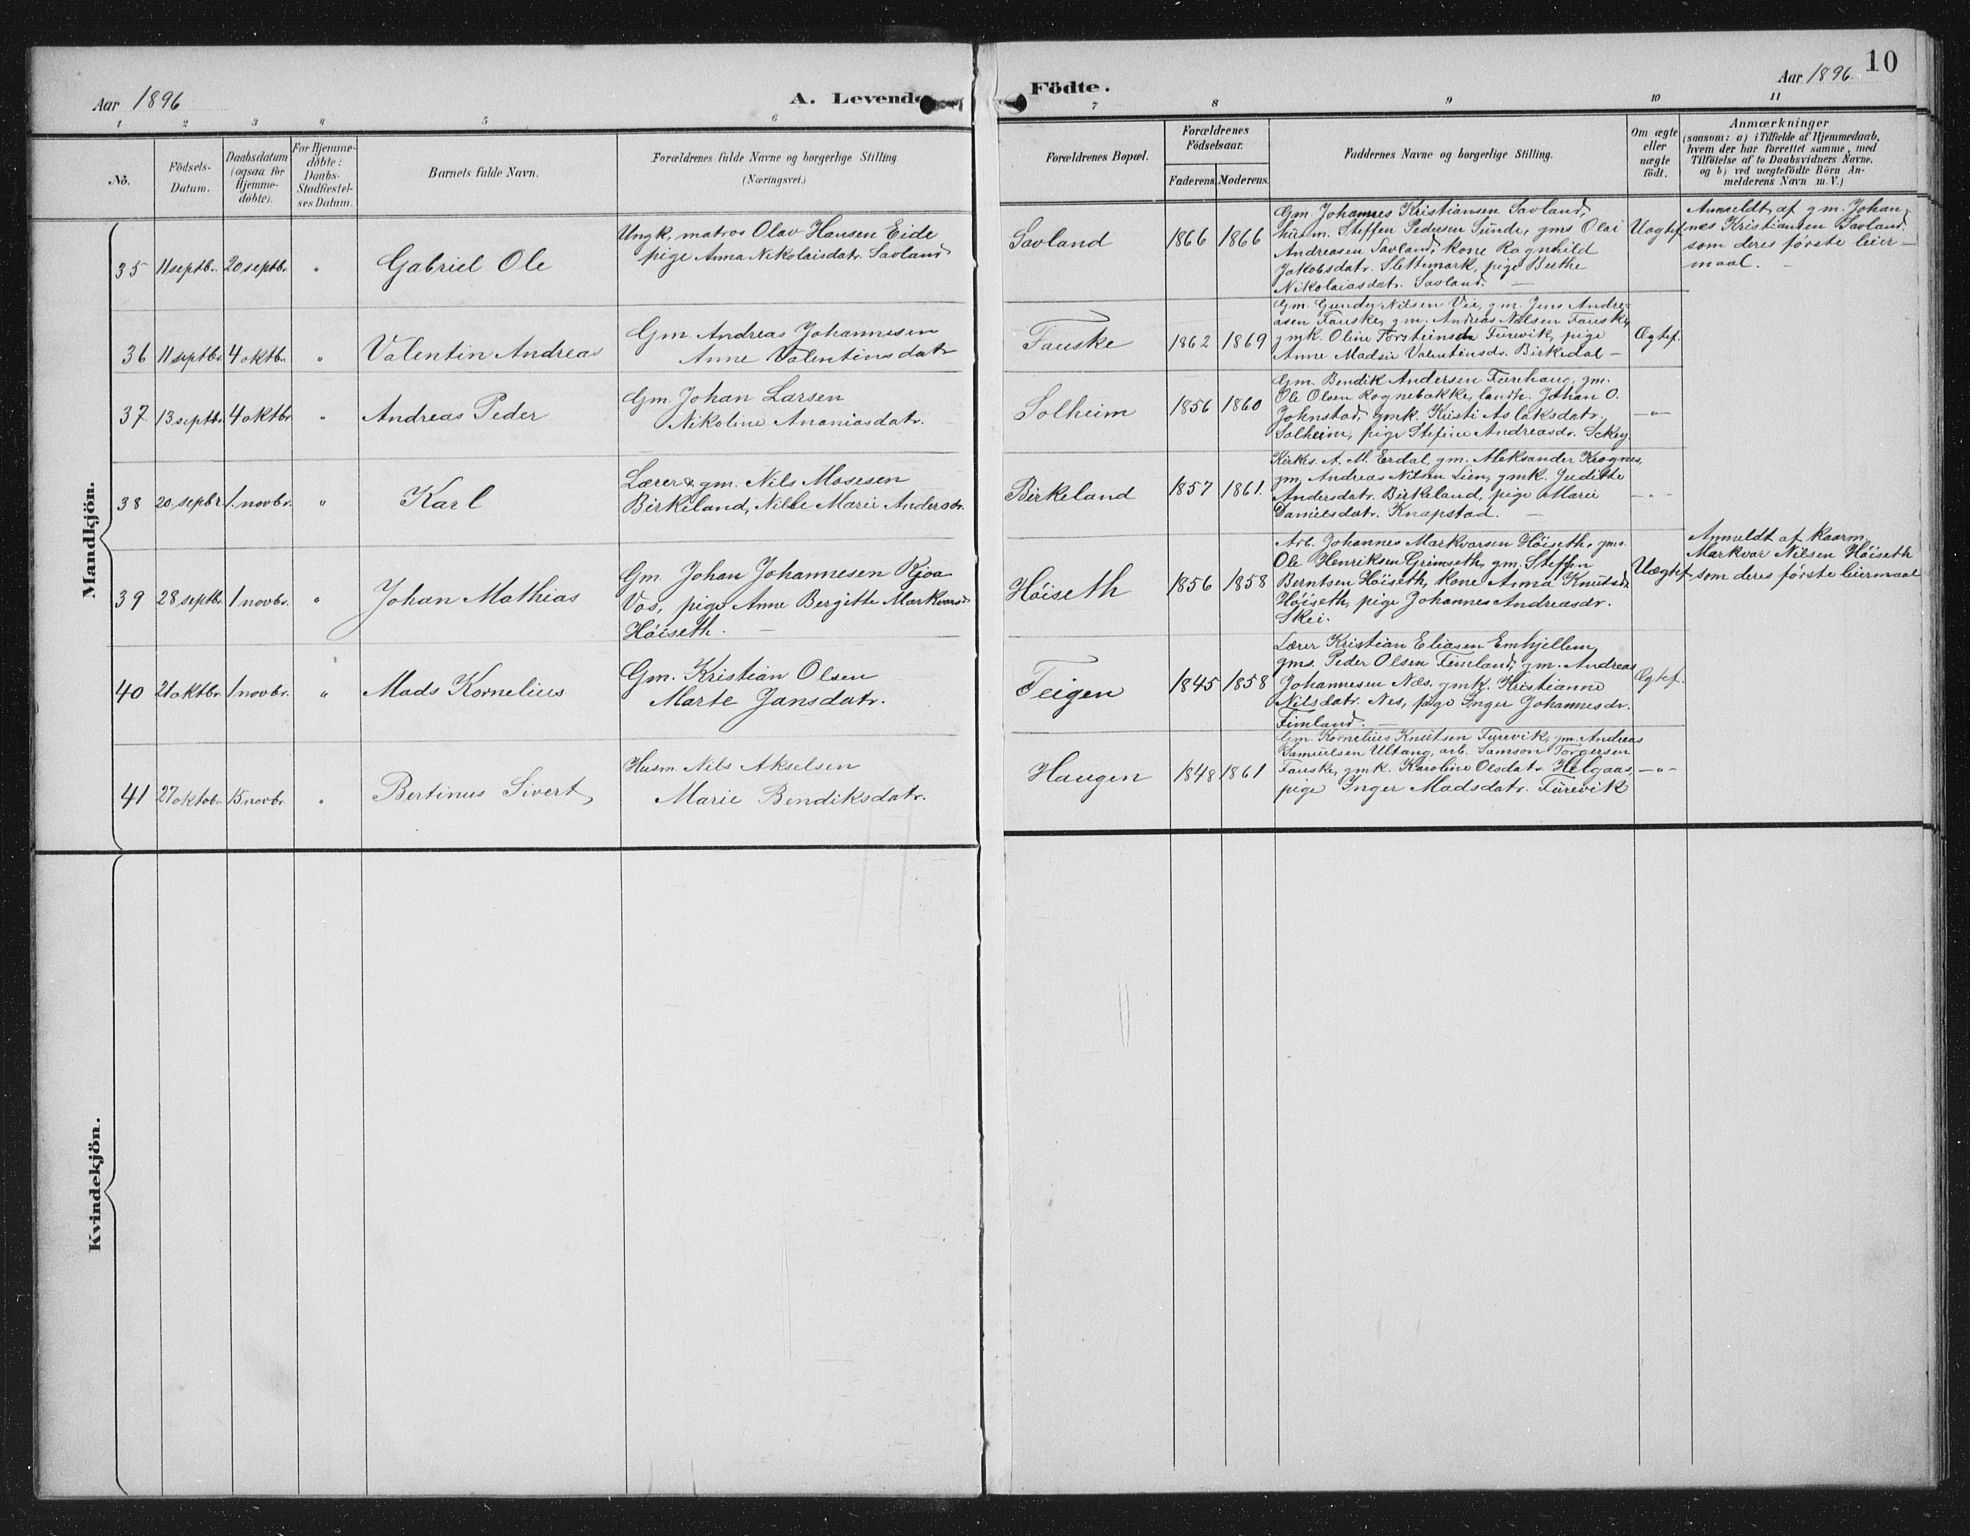 Aar 1896
A. Levende
Födte.
Aar 1896.
10
1 2 3 4 5 6 7 8 9 10 11
No.
Födsels-
Datum.
Daabsdatum
(ogsaa för
Hjemme-
döbte).
For Hjemme-
döbte:
Daabs-
Stadfæstel-
ses Datum.
Barnets fulde Navn.
Forældrenes fulde Navne og borgerlige Stilling.
(Næringsvei.)
Forældrenes Bopæl.
Forældrenes
Födselsaar.
Faderens. Moderens.
Faddernes Navne og borgerlige Stilling.
Om ægte
eller
uægte
födt.
Anmærkninger
(saasom: a) i Tilfælde af Hjemmedaab,
hvem der har forrettet samme, med
Tilföielse af to Daabsvidners Navne.
og b) ved uægtefödte Börn An-
melderens Navn m. V.)
Mandkjön.
35 11 septb. 20 septbr. " Gabriel Ole
Ungk, matros Olav Hansen Eide
pige Anna Nikolaisdatr. Savland
Savland 1866 1866
Gm. Johannes Kristiansen Savland,
husm. Steffen Pedersen Sunde, gms Olai
Andreasen Savland, kone Ragnhild
Jakobsdatr. Slettemark, pige Berthe
Nikolaiasdatr. Savland. —
Uægtef.
Anmeldt af gm. Johan-
nes Kristiansen Savland
som deres første leier-
maal. —
36 11 septbr. 4 oktb. " Valentin Andreas
Gm. Andreas Johannesen
Anne Valentinsdatr
Fauske 1862 1869
Gm. Gunder Nilsen Vie, gm. Jens Andre-
asen Fauske, gm. Andreas Nilsen Fauske,
gmk. Oline Torsteinsdr Furevik, pige
Anne Madsie Valentinsds. Birkedal —
Ægtef.
37 13 septbr. 4 oktbr " Andreas Peder
Gm. Johan Larsen
Nikoline Ananiasdatr.
Solheim 1856 1860
Gm. Bendik Andersen Furehaug, gm.
Ole Olsen Rognebakke, landh. Johan O.
Johnstad, gmk. Kristi Aslaksdatr.
Solheim, pige Stefine Andreasdr. Sckey.
—"—
38 20 sepbr 1. novbr. " Karl
Lærer & gm. Nils Mosesen
Birkeland, Nille Marie Andersdr.
Birkeland 1857 1861.
Kirkes. A. M. Erdal, gm. Aleksander Krognes,
gm, Andreas Nilsen Lien, gmk. Judithe
Andersdatr. Birkeland, pige Marie
Danielsdatr. Knapstad. —
—"—
39 28 septbr. 1 novbr. " Johan Mathias
Gm. Johan Johannesen Rjoa
Vos, pige Anne Bergitte Markvarsd.
Høiseth. —
Høiseth 1856 1858
Arb. Johannes Markvarsen Høiseth, gms.
Ole Henriksen Grimseth, gm. Steffen
Berntsen Høiseth, kone Anna Knutsd.
Høiseth, pige Johanne Andreasdr.
Skei.
Uægtef
Anmeldt af kaarm.
Markvar Nilsen Høiseth
som deres første leiermaal
40 21 oktbr. 1 novbr. " Mads Kornelius
Gm. Kristian Olsen
Marte Jansdatr.
Feigen 1845 1858
Lærer Kristian Eliasen Emhjellen,
gms. Peder Olsen Fimland, gm. Andreas
Johannesen Næs. gmk. Kristianne
Nilsdatr. Nes, pige Inger Johannesdr.
Fimland. —
Ægtef.
41 27 oktob. 15 novbr. " Bertinus Sivert
Husm. Nils Akselsen
Marie Bendiksdatr.
Haugen 1848 1861
Gm. Kornelius Knutsen Furevik, gm. Andreas
Samuelsen Ultang, arb. Samson Torgersen
Fauske, gmk. Karoline Olsdatr. Helgaas,
pige Inger Madsdatr. Furevik
—"—
Kvindekjön.